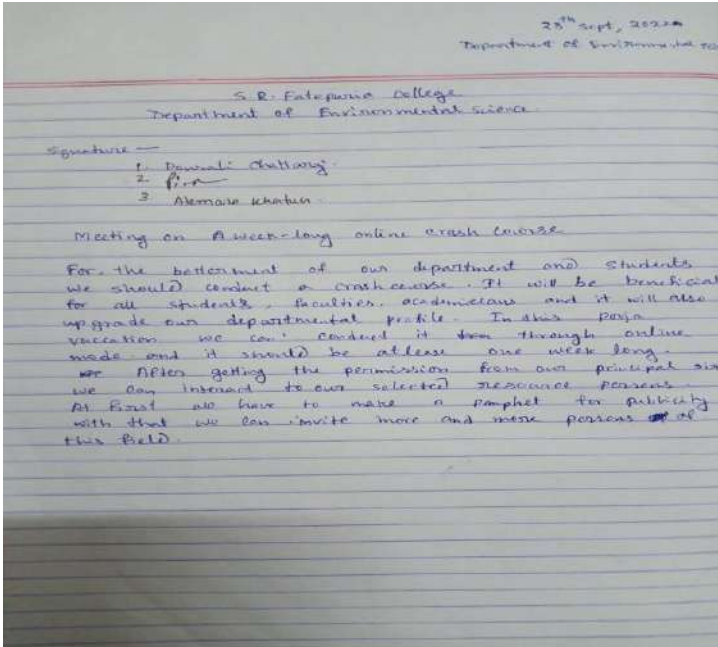 Sept, 2022
Department of Environmental
S. R. Fatepuria College
Department of Environmental Science.
Signature —
1. Chattaraj.
2
3 Khatun.
Meeting on A week-long online crash course
For. the betterment of our department and students
we should conduct a crash course. It will be beneficial
for all students, faculties, academicians and it will also
upgrade our departmental profile. In this puja
vaccation we can conduct it through online
mode and it should be atlease one week long.
After getting the permission from our principal sir
we can interact to our selected resource persons.
At first we have to make a pamphet for publicity
with that we can invite more and more persons of
this field.